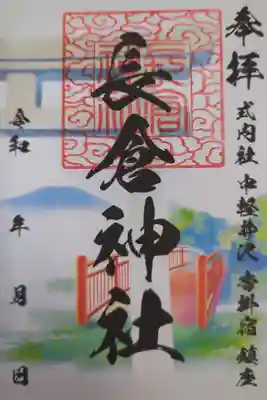 奉拝
式内社 中軽井沢 沓掛宿 鎮座
長倉神社
令和 年 月 日